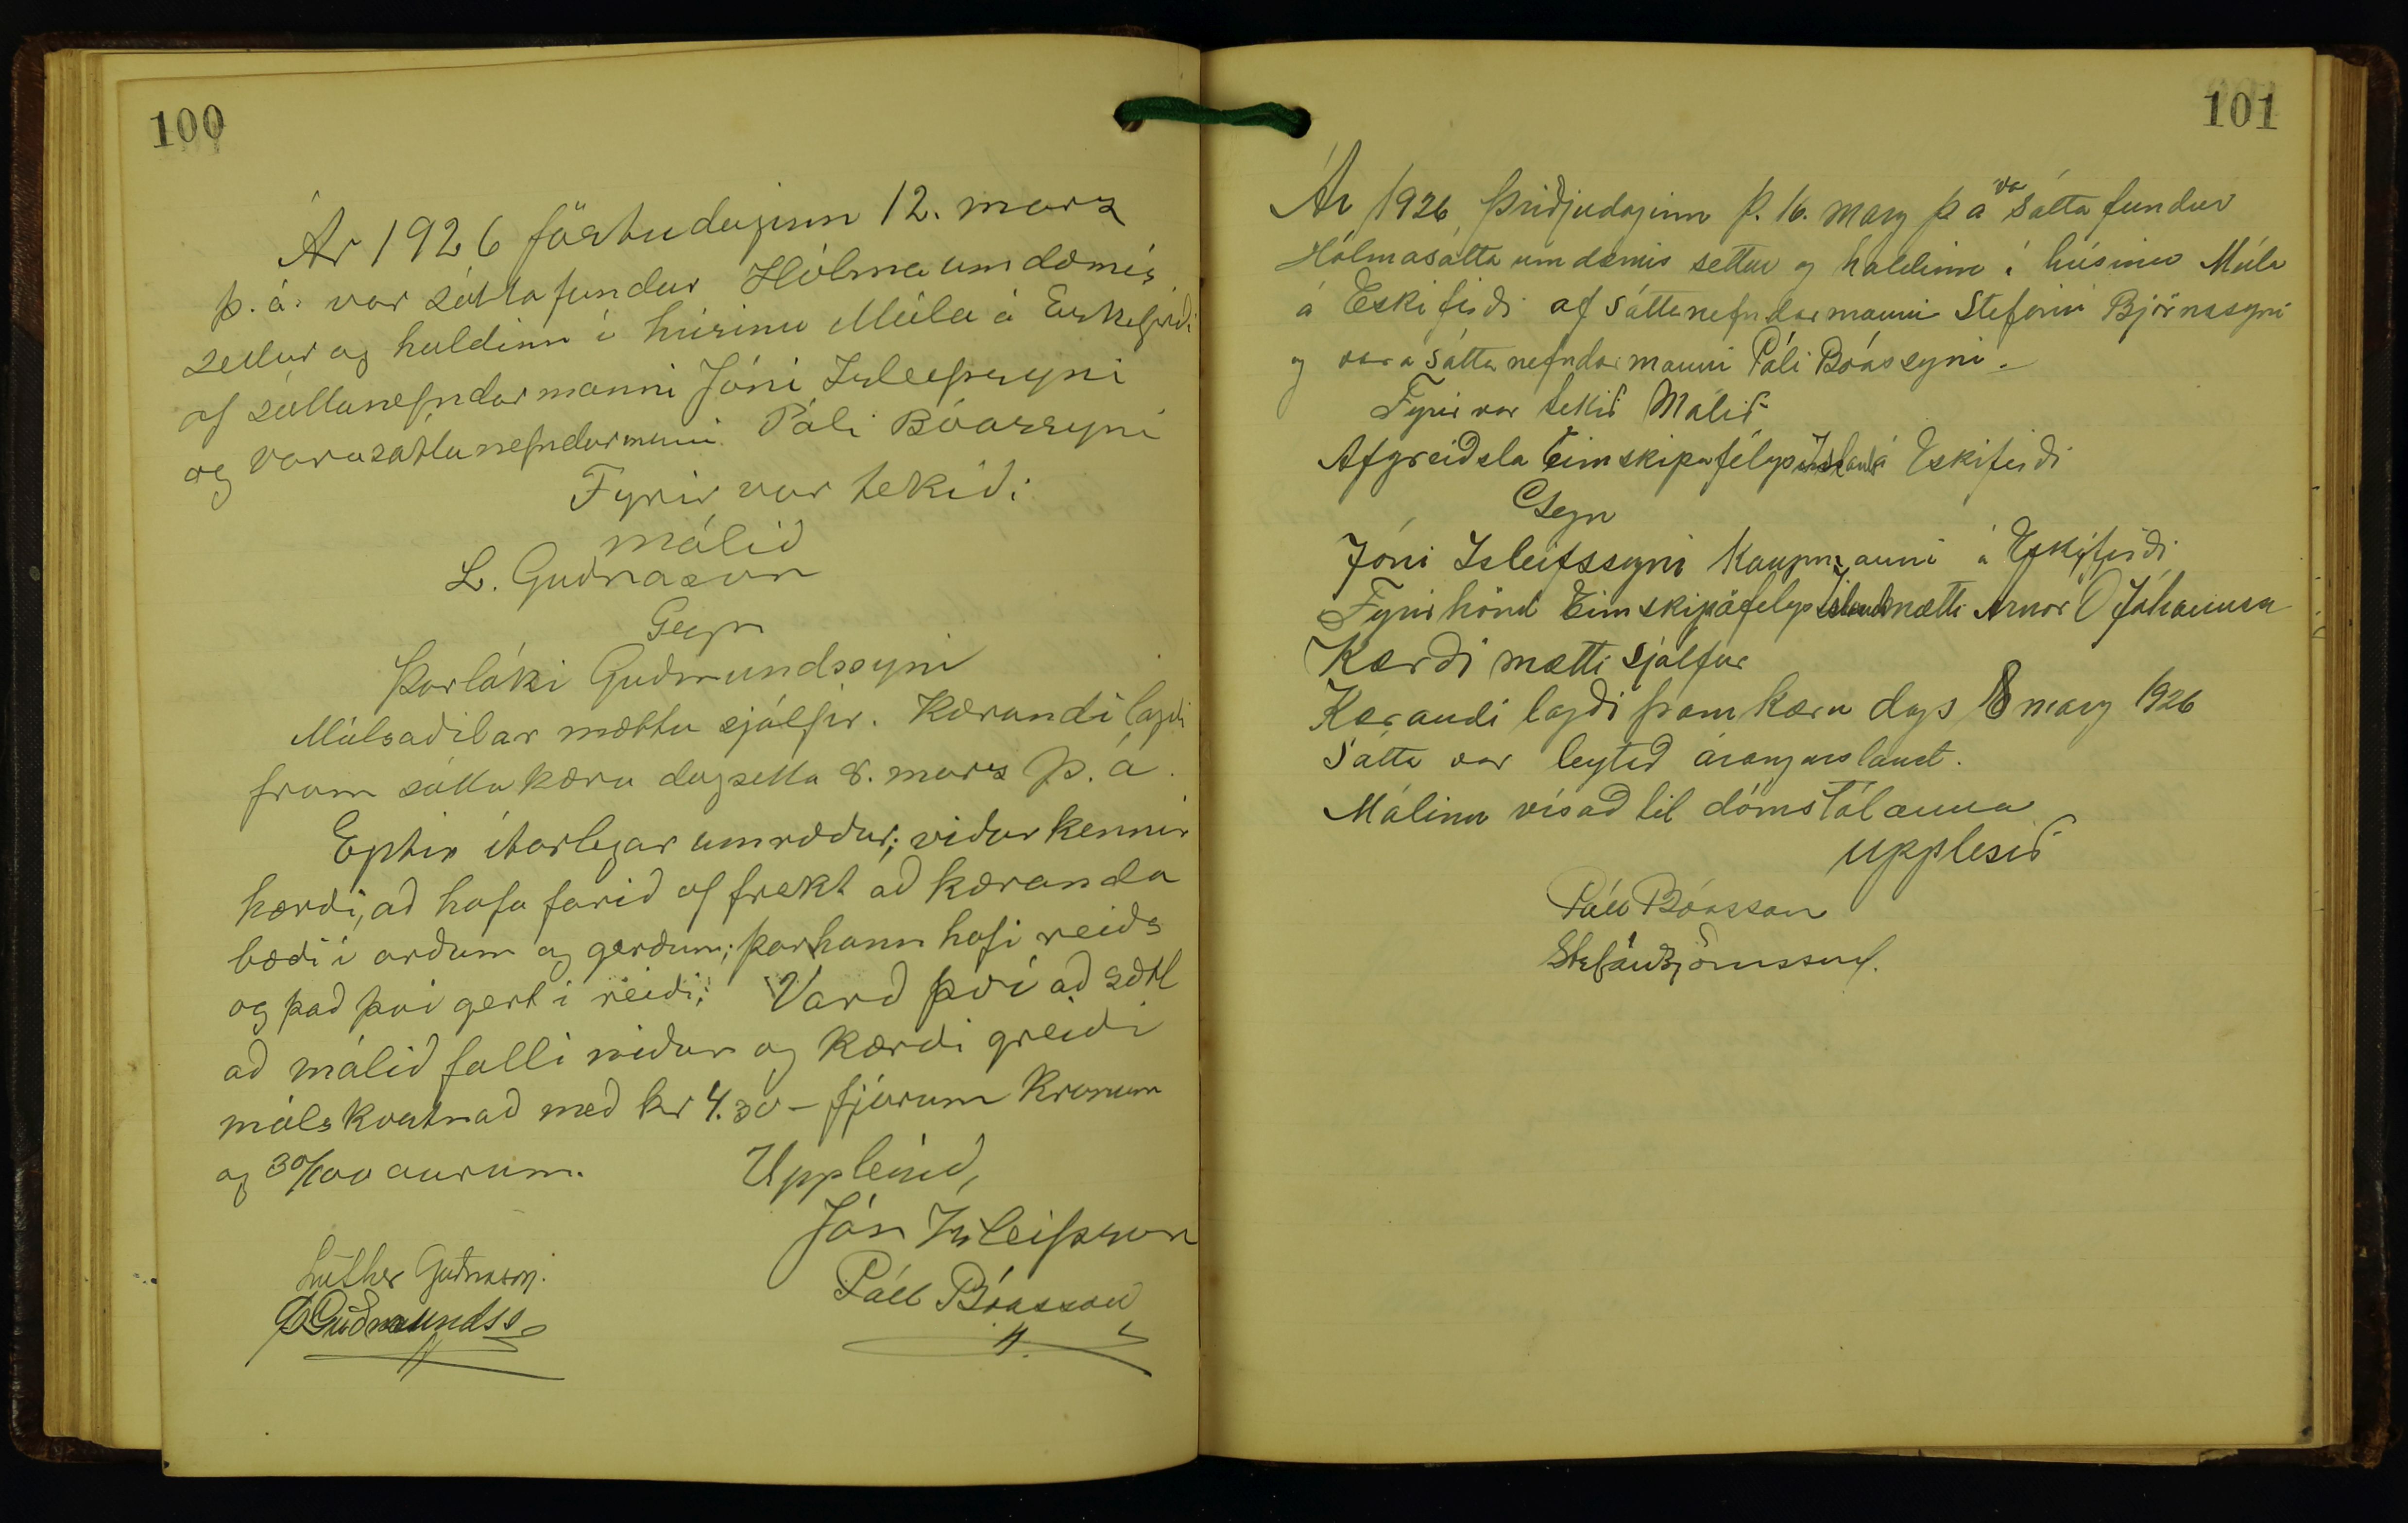 100
Ár 1926 föstudaginn 12. mars
þ.á. var sáttafundur Hólmaumdæmis
settur og haldinn í húsinu Múla á Eskifirði
af sáttanefndarmanni Jóni Ísleifssyni
og varasáttanefndarmanni Páli Bóassyni
Fyrir var tekið:
málið
L. Guðnason
Gegn
Þorláki Guðmundssyni
Málsaðilar mættu sjálfir. Kærandi lagði
fram sáttakæru dagsetta 8. mars þ.á.
Eptir ítarlegar umræður; viðurkennir
kærði, að hafa farið of frekt að kæranda
bæði í orðum og gerðum; þar hann hafi reiðs
og það því gert í reiði; Varð því að sátt
að málið falli niður og kærði greiði
málskostnað með kr 4.30 - fjórum krónum
og 30/100 aurum.
Upplesið,
Jón Ísleifsson
Páll Bóasson
Luther Guðnason.
Þ Guðmundss
101
Ár 1926 Þriðjudaginn þ. 16. marz þ á var Sáttafundur
Hólmasáttaumdæmis settur og haldinn í húsinu Múla
á Eskifirði af Sáttanefndarmanni Stefáni Björnssyni
og vara Sáttanefndarmanni Páli Bóassyni.
Fyrir var tekið Málið
Afgreiðsla Eimskipafélags Íslands á Eskifirði
Gegn
Jóni Ísleifssyni Kaupmanni á Eskifirði
Fyrir hönd Eimskipafélags Íslands mætti Arnór O Jóhannsson
Kærði mætti sjálfur
Kærandi lagði fram kæru dags 8 marz 1926
Sátta var leytað árangurslaust.
Málinu vísað til dómstólanna
Upplesið
Páll Bóasson
Stefán Björnsson.